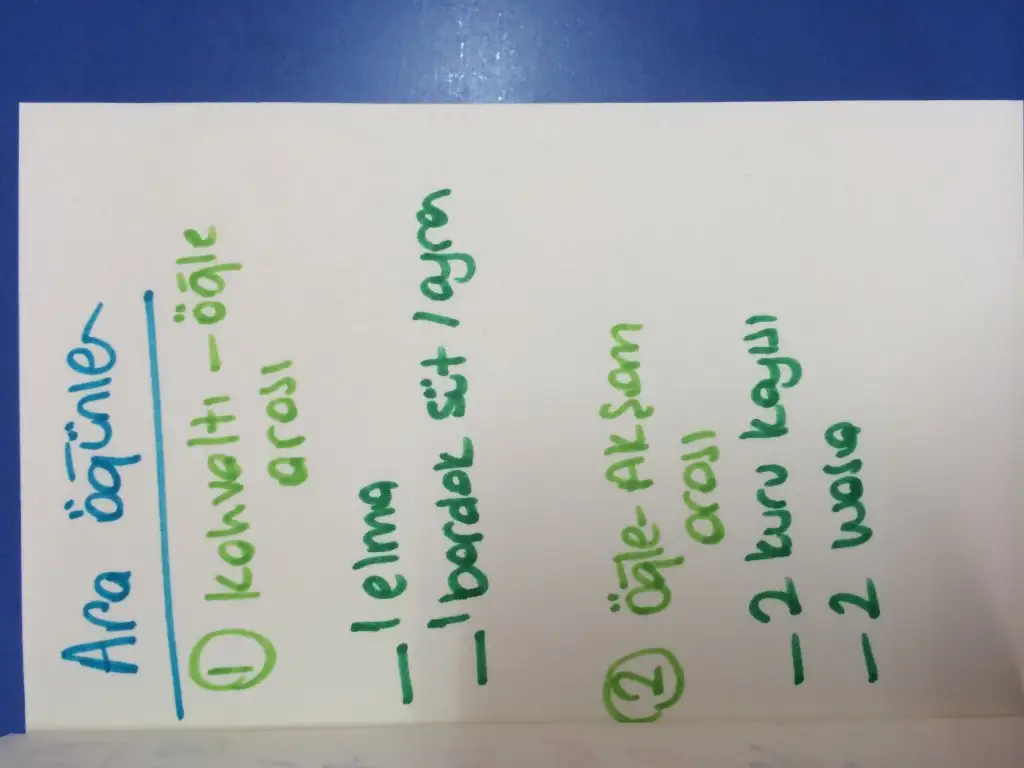 Ara öğünler
① kahvaltı - öğle
arası
- 1 elma
- 1 bardak süt / ayran
② öğle - Akşam
arası
- 2 kuru kayısı
- 2 wasa